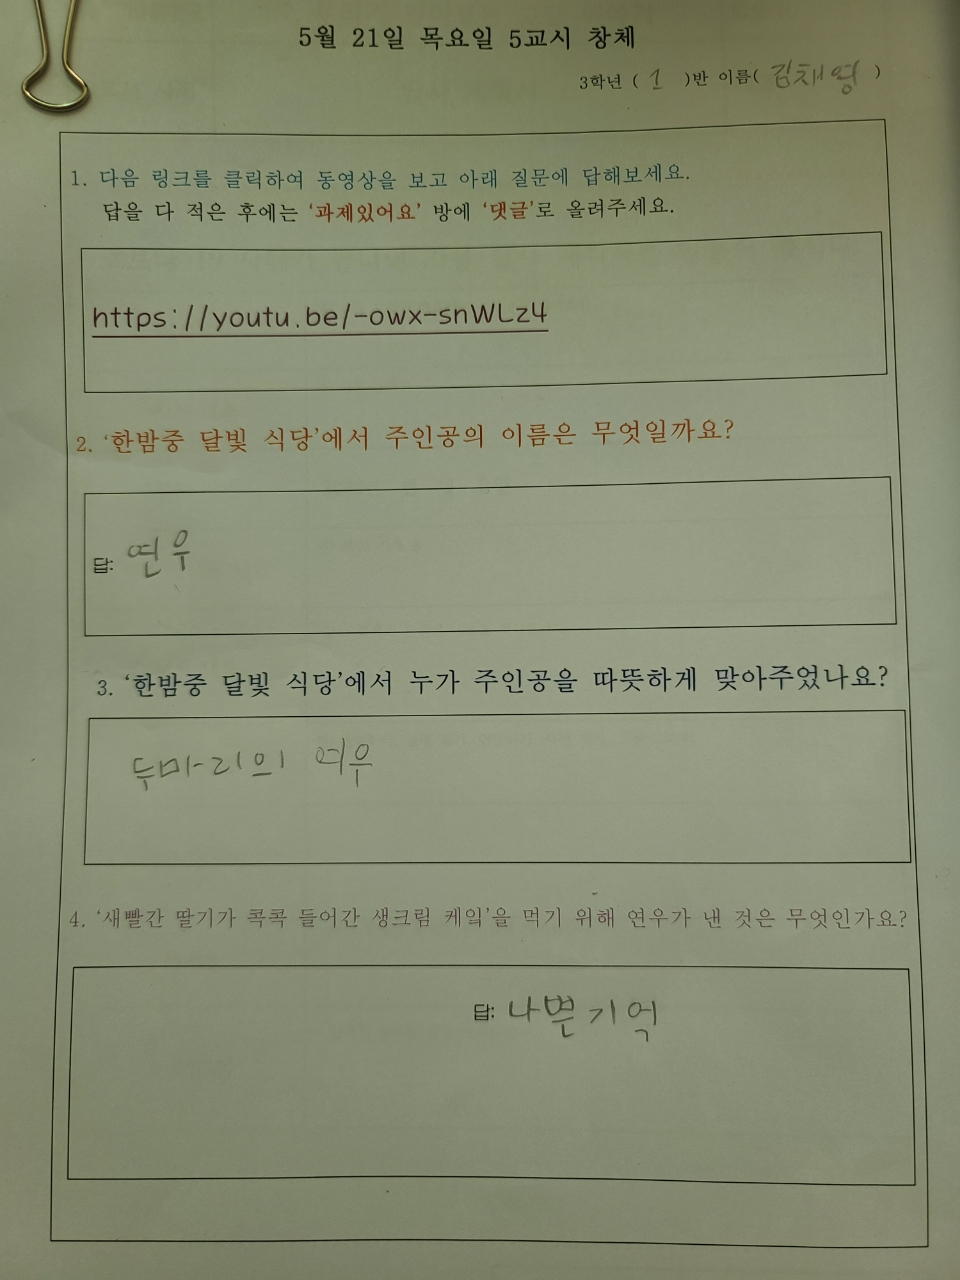 5월 21일 목요일 5교시 창체
3학년 ( 1 )반 이름( 김채영 )
1. 다음 링크를 클릭하여 동영상을 보고 아래 질문에 답해보세요.
답을 다 적은 후에는 ‘과제있어요’ 방에 ‘댓글’로 올려주세요.
https://youtu.be/-owx-snWLz4
2. ‘한밤중 달빛 식당’에서 주인공의 이름은 무엇일까요?
답: 연우
3. ‘한밤중 달빛 식당’에서 누가 주인공을 따뜻하게 맞아주었나요?
두마리의 여우
4. ‘새빨간 딸기가 콕콕 들어간 생크림 케잌’을 먹기 위해 연우가 낸 것은 무엇인가요?
답: 나쁜기억